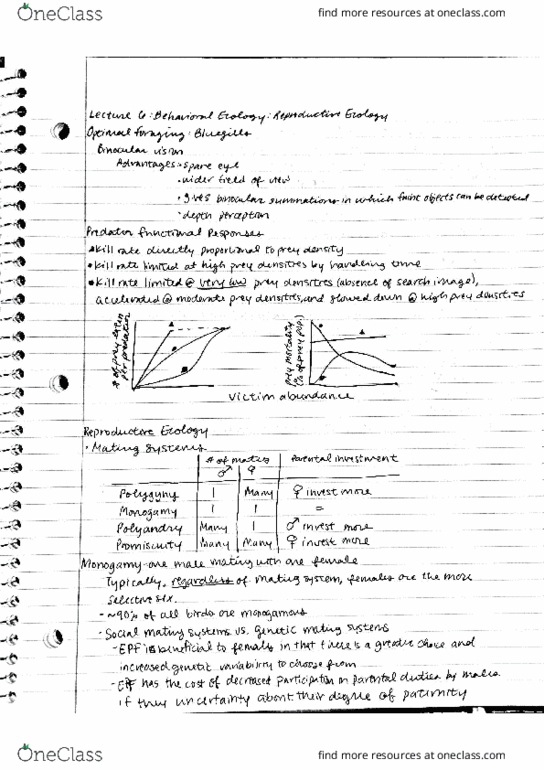 OneClass
find more resources at oneclass.com
Lecture 6: Behavioral Ecology: Reproductive Ecology
Optimal foraging: Bluegills
Binocular vision
Advantages: • spare eye
• wider field of view
• gives binocular summations in which faint objects can be detected
• depth perception
Predator Functional Responses
▲Kill rate directly proportional to prey density
• Kill rate limited at high prey densities by handling time
■ Kill rate limited @ very low prey densities (absence of search image),
accelerated @ moderate prey densities, and slowed down @ high prey densities
# of prey eaten
per predator
prey mortality
(% of prey pop.)
Victim abundance
Reproductive Ecology
• Mating Systems
# of mates Parental investment
♂ ♀
Polygyny 1 Many ♀ invest more
Monogamy 1 1 =
Polyandry Many 1 ♂ invest more
Promiscuity Many Many ♀ invest more
Monogamy-one male mating with one female
Typically, regardless of mating system, females are the more
selective sex.
- ~90% of all birds are monogamous
- Social mating systems vs. genetic mating systems
- EPF is beneficial to females in that there is a greater choice and
increased genetic variability to choose from
- EPF has the cost of decreased participation in parental duties by males
if they uncertainty about their degree of paternity
OneClass
find more resources at oneclass.com